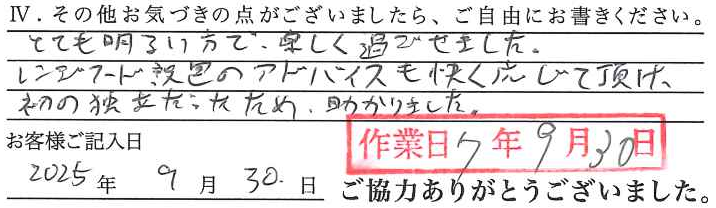 Ⅳ. その他お気づきの点がございましたら、ご自由にお書きください。
とても明るい方で、楽しく過ごせました。
レンジフード設置のアドバイスも快く応じて頂け、
初の独立だったため、助かりました。
お客様ご記入日
作業日 7 年 9 月 30 日
2025 年 9 月 30. 日
ご協力ありがとうございました。